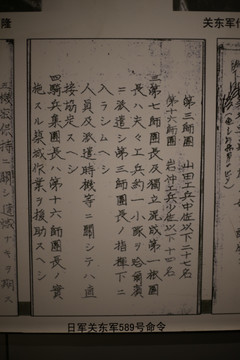 隆
关东军作
第三師團 山田工兵中佐以下二十七名
第十六師團 岩沖工兵少佐以下十四名
三第七師團長及獨立混成第一旅團
長ハ夫々工兵約一小隊ヲ哈爾賓
ニ派遣シ第三師團長ノ指揮下ニ
入ラシムヘシ
人員及派遣時機等ニ關シテハ直
接協定スヘシ
四騎兵集團長ハ第十六師團長ノ實
施スル築城作業ヲ援助スヘシ
日军关东军589号命令